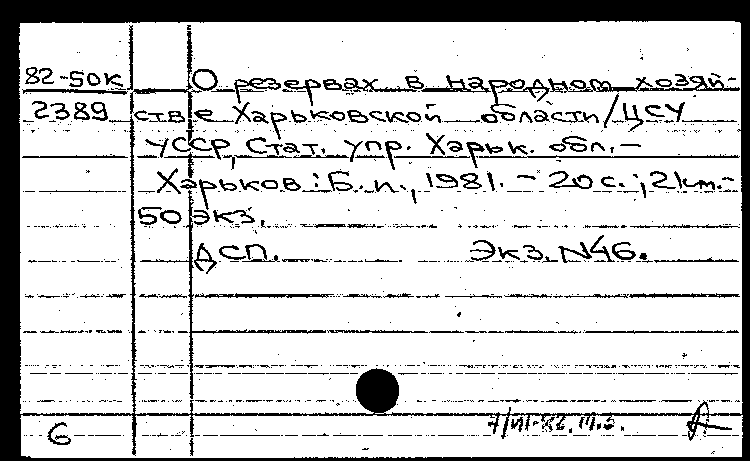 82-50к О резервах в народном хозяй-
2389 стве Харьковской области/ЦСУ
УССР, Стат. упр. Харьк. обл.-
Харьков: Б.и., 1981. - 20 с.; 21 см.-
50 экз.
ДСП. Экз. N46.
6